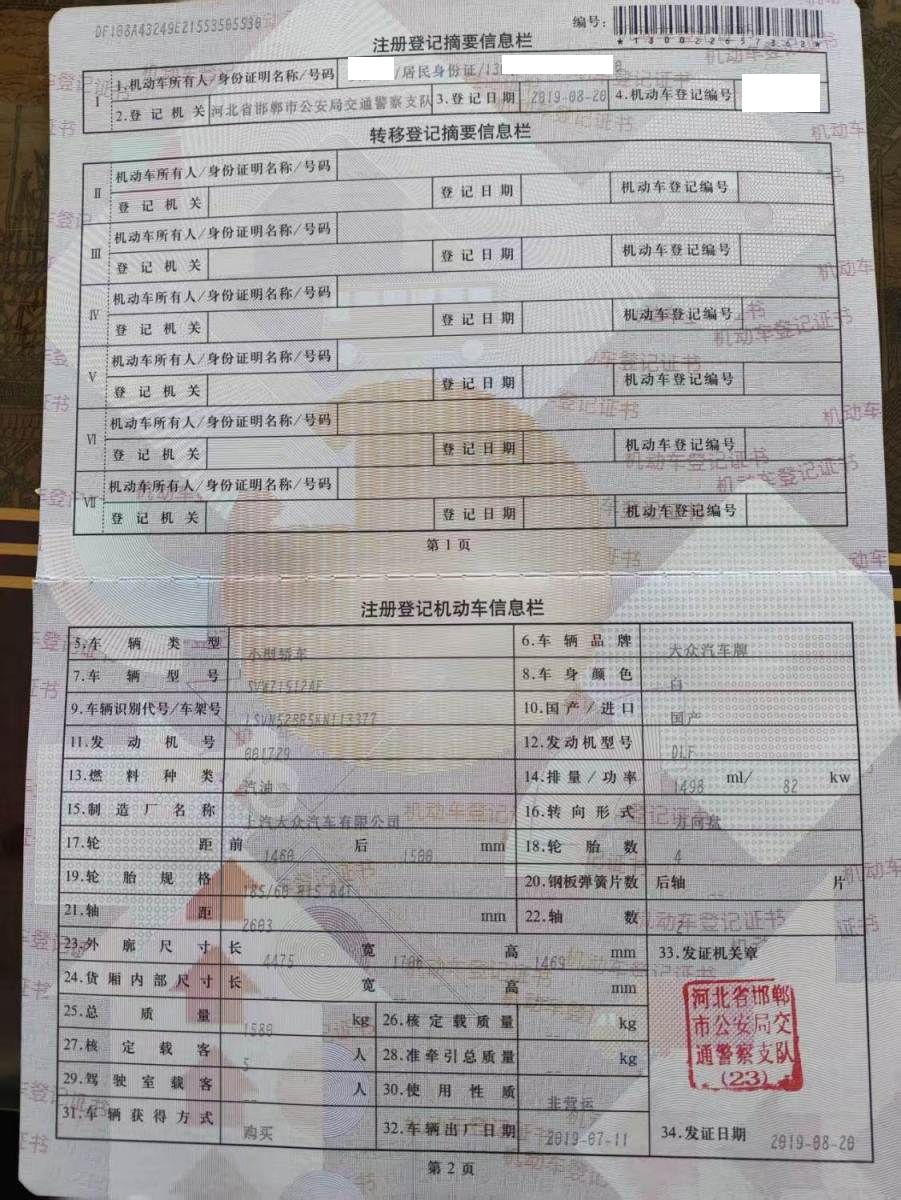 DF108A43249E21553505530
编号：
*130022657362*
注册登记摘要信息栏
Ⅰ 1.机动车所有人/身份证明名称/号码 /居民身份证/13
2.登记机关 河北省邯郸市公安局交通警察支队 3.登记日期 2019-08-20 4.机动车登记编号
转移登记摘要信息栏
Ⅱ 机动车所有人/身份证明名称/号码
登记机关 登记日期 机动车登记编号
Ⅲ 机动车所有人/身份证明名称/号码
登记机关 登记日期 机动车登记编号
Ⅳ 机动车所有人/身份证明名称/号码
登记机关 登记日期 机动车登记编号
Ⅴ 机动车所有人/身份证明名称/号码
登记机关 登记日期 机动车登记编号
Ⅵ 机动车所有人/身份证明名称/号码
登记机关 登记日期 机动车登记编号
Ⅶ 机动车所有人/身份证明名称/号码
登记机关 登记日期 机动车登记编号
第1页
注册登记机动车信息栏
5.车辆类型 小型轿车 6.车辆品牌 大众汽车牌
7.车辆型号 SVW21512AE 8.车身颜色 白
9.车辆识别代号/车架号 10.国产/进口 国产
11.发动机号 081729 12.发动机型号 DLF
13.燃料种类 汽油 14.排量/功率 1498 ml/ 82 kw
15.制造厂名称 上汽大众汽车有限公司 16.转向形式 方向盘
17.轮距 前 1460 后 1500 mm 18.轮胎数 4
19.轮胎规格 185/60 R15 84T 20.钢板弹簧片数 后轴 片
21.轴距 2603 mm 22.轴数 2
23.外廓尺寸 长 4475 宽 1706 高 1469 mm 33.发证机关章
24.货厢内部尺寸 长 -- 宽 -- 高 -- mm
25.总质量 1580 kg 26.核定载质量 -- kg
27.核定载客 5 人 28.准牵引总质量 -- kg
29.驾驶室载客 -- 人 30.使用性质 非营运
31.车辆获得方式 购买 32.车辆出厂日期 2019-07-11 34.发证日期 2019-08-20
河北省邯郸
市公安局交
通警察支队
(23)
第2页